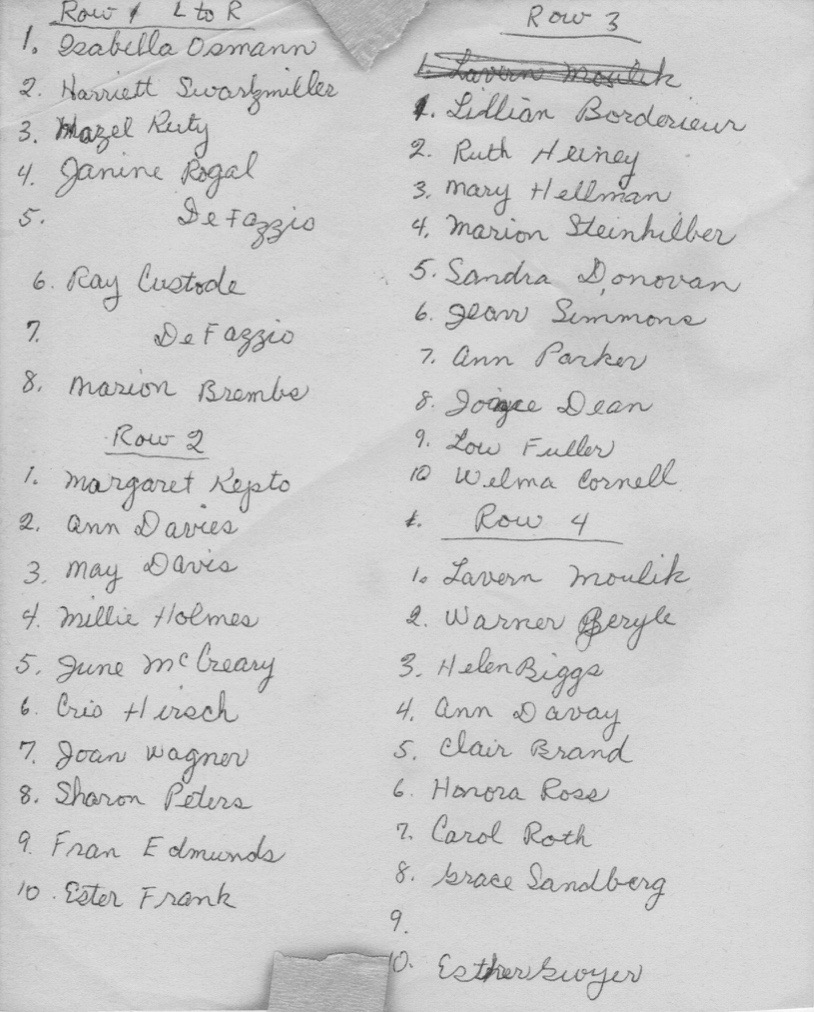 Row 1 L to R
1. Isabella Osmann
2. Harriett Swartzmiller
3. Hazel Ruty
4. Janine Rogal
5. DeFazzio
6. Ray Custode
7. DeFazzio
8. Marion Brembs
Row 2
1. Margaret Kepto
2. Ann Davies
3. May Davis
4. Millie Holmes
5. June McCreary
6. Cris Hirsch
7. Joan Wagner
8. Sharon Peters
9. Fran Edmunds
10. Ester Frank
Row 3
1. Lavern Moulik
1. Lillian Borderieur
2. Ruth Heiney
3. Mary Hellman
4. Marion Steinhilber
5. Sandra Donovan
6. Jean Simmons
7. Ann Parker
8. Joyce Dean
9. Low Fuller
10 Welma Cornell
1. Row 4
1. Lavern Moulik
2. Warner Beryle
3. Helen Biggs
4. Ann Davay
5. Clair Brand
6. Honora Ross
7. Carol Roth
8. Grace Sandberg
9.
10. Esther Gwyer